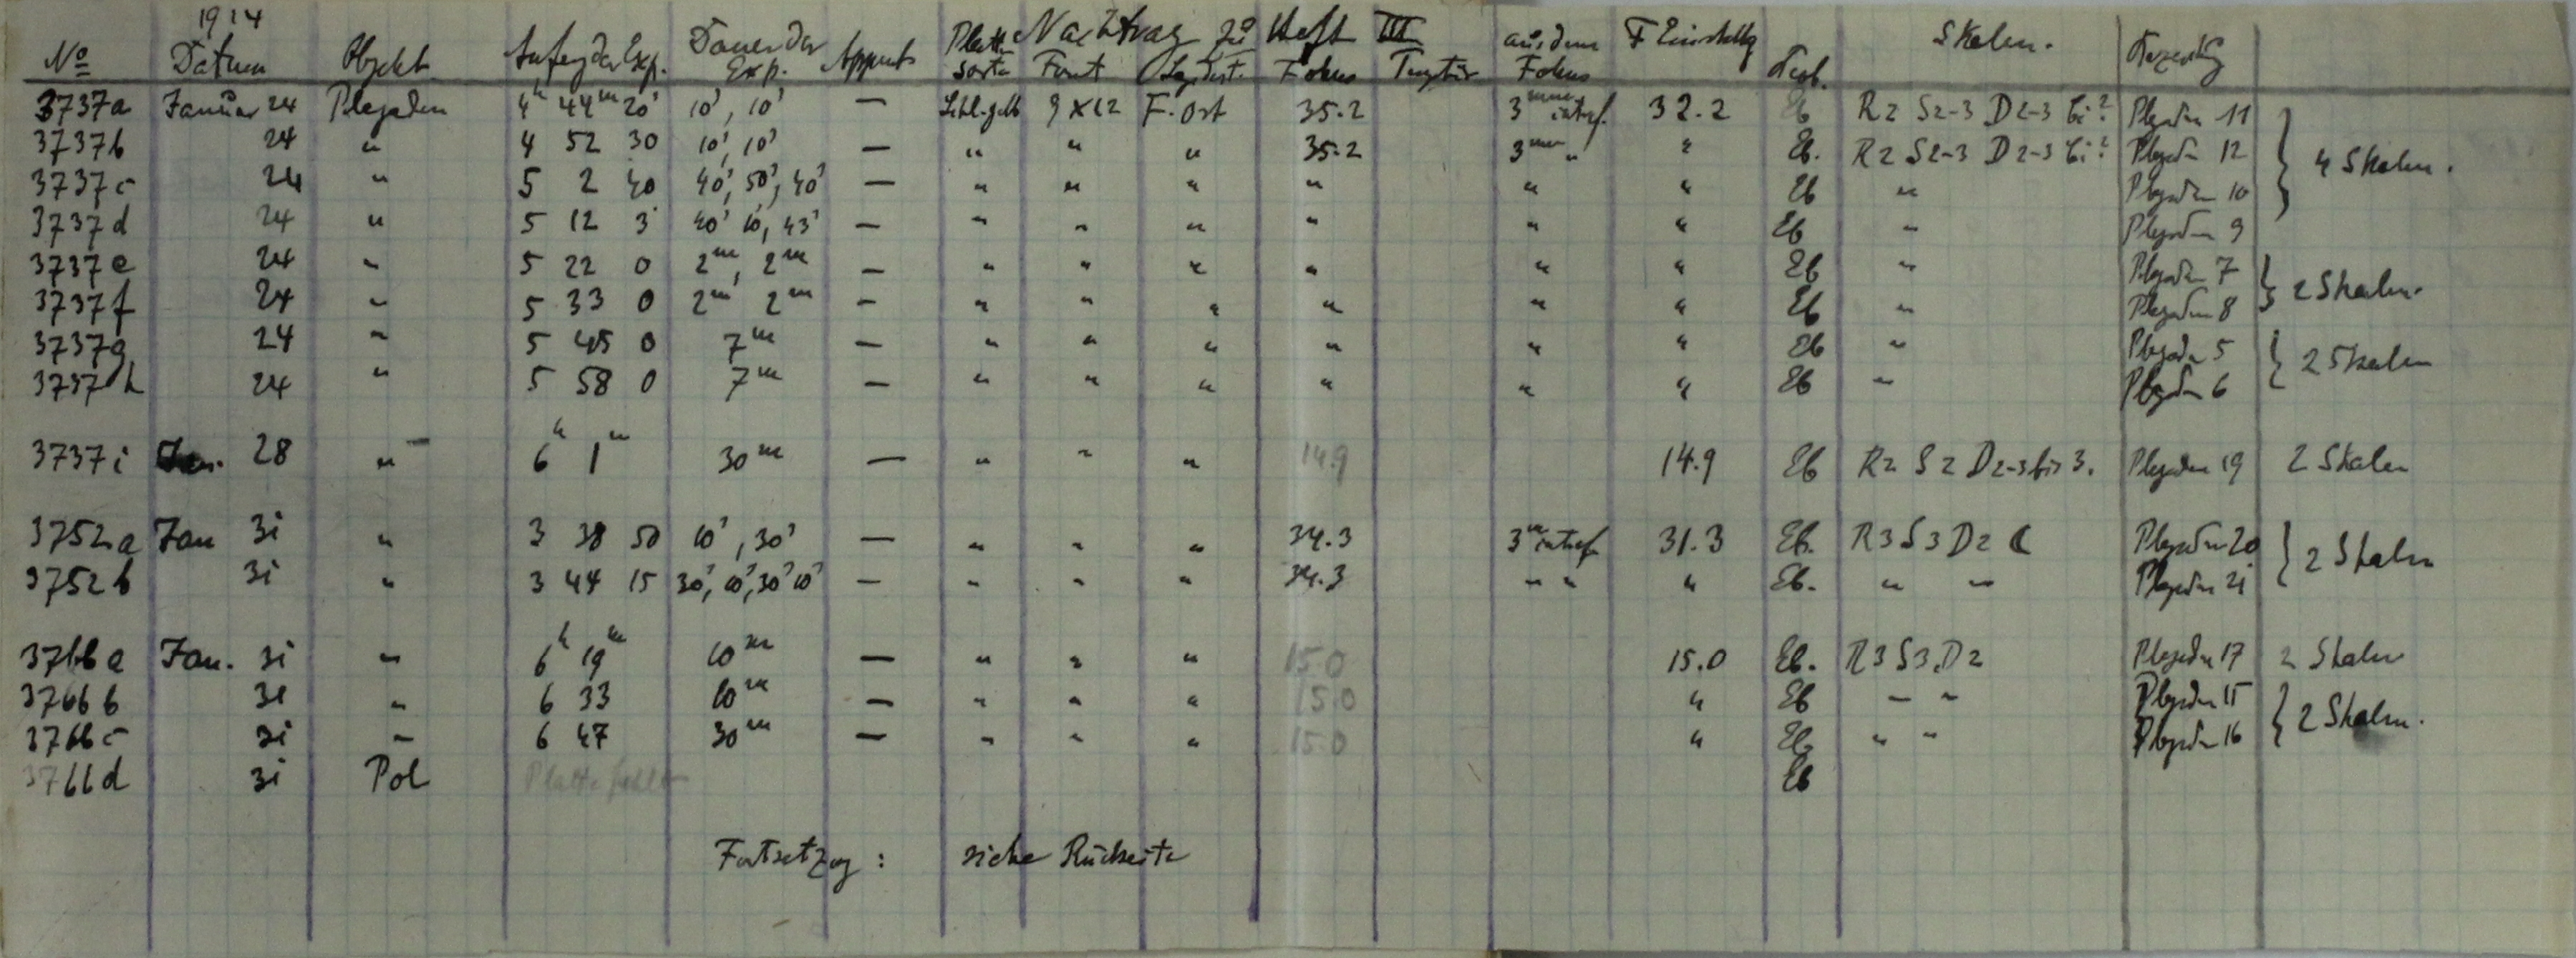 1914 Nachtrag zu Heft III
No Datum Objekt Anfang der Exp. Dauer der Exp. Platte sorte Format Fokus aus dem Fokus F Einstellg Beob. Skalen.
3737a Januar 24 Plejaden 4h 44m 20s 10s, 10s — 9x12 F. Ost 35.2 3mm intraf. 32.2 Eb R2 S2-3 D2-3 Ci? Plejaden 11
3737b 24 " 4 52 30 10s, 10s — " " " 35.2 3mm " " Eb. R2 S2-3 D2-3 Ci? Plejaden 12
3737c 24 " 5 2 40 40s, 50s, 40s — " " " " " " Eb " Plejaden 10 } 4 Skalen.
3737d 24 " 5 12 3 40s 10, 43s — " " " " " " Eb " Plejaden 9
3737e 24 " 5 22 0 2m, 2m — " " " " " " Eb " Plejaden 7
3737f 24 " 5 33 0 2m 2m — " " " " " " Eb " Plejaden 8 } 2 Skalen.
3737g 24 " 5 45 0 7m — " " " " " " Eb " Plejaden 5
3737h 24 " 5 58 0 7m — " " " " " " Eb " Plejaden 6 } 2 Skalen
3737i Jan. 28 " 6h 1m 30m — " " " 14.9 14.9 Eb R2 S2 D2-3 bis 3. Plejaden 19 2 Skalen
3752a Jan 31 " 3 38 50 10s, 30s — " " " 34.3 3m intraf. 31.3 Eb. R3 S3 D2 ☾ Plejaden 20
3752b 31 " 3 44 15 30s, 10s, 30s 10s — " " " 34.3 " " " Eb. " " Plejaden 21 } 2 Skalen
3766a Jan. 31 " 6h 19m 10m — " " " 15.0 15.0 Eb. R3 S3 D2 Plejaden 17 2 Skalen
3766b 31 " 6 33 10m — " " " 15.0 " Eb " " Plejaden 15
3766c 31 " 6 47 30m — " " " 15.0 " Eb " " Plejaden 16 } 2 Skalen.
3766d 31 Pol Platte fehlt Eb
Fortsetzung : siehe Rückseite